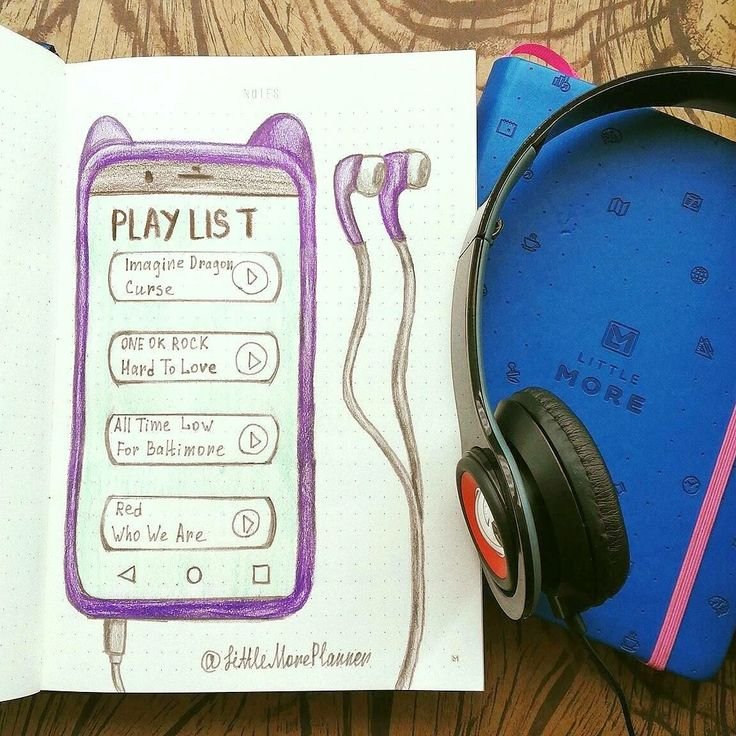 NOTES
PLAY LIST
Imagine Dragon
Curse
ONE OK ROCK
Hard To Love
All Time Low
For Baltimore
Red
Who We Are
@LittleMorePlanner
M
M
LITTLE
MORE